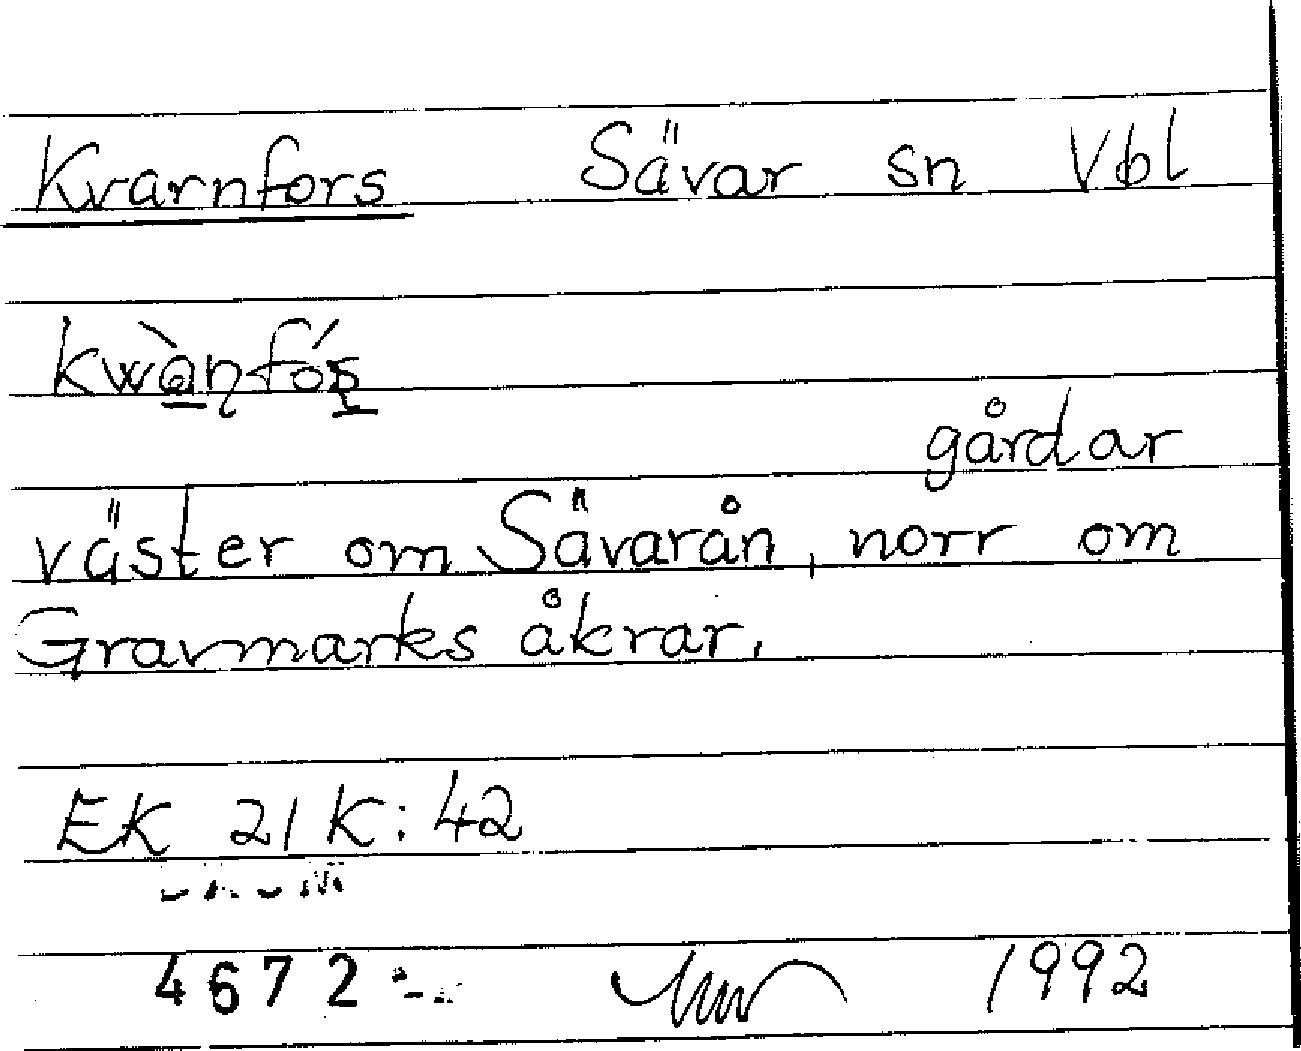 Kvarnfors Sävar sn Vbl
kwànfóş
gårdar
väster om Sävarån, norr om
Gravmarks åkrar.
EK 21 K: 42
4672 1992